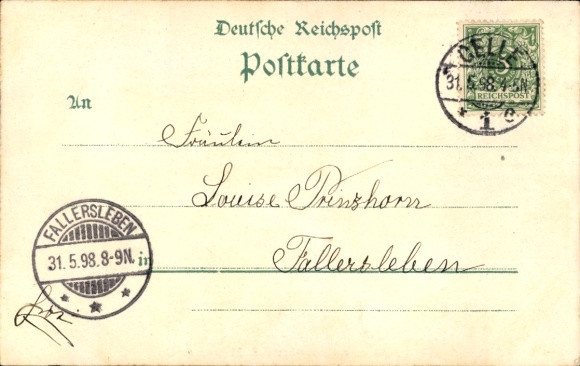 Deutsche Reichspost
Postkarte
CELLE
31.5.98.4-5N.
* 1 c
REICHSPOST
An
Fräulein
Louise Prinzhorn
in Fallersleben
FALLERSLEBEN
31.5.98.8-9N.
* * *